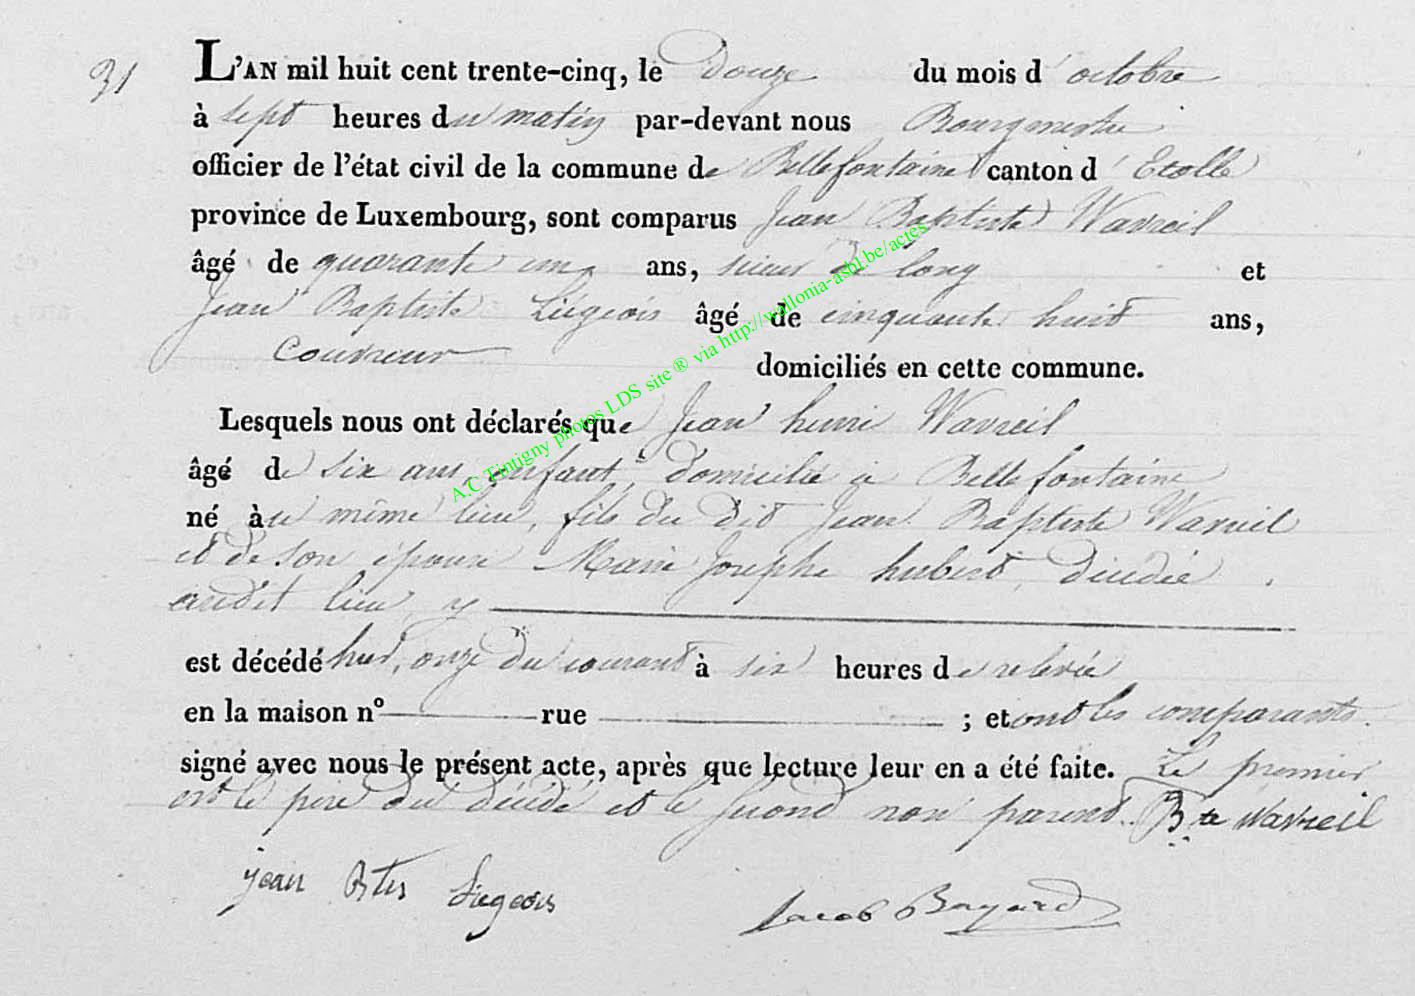 31
L'AN mil huit cent trente-cinq, le Douze du mois d'octobre
à sept heures du matin par-devant nous Bourgmestre
officier de l'état civil de la commune de Bellefontaine canton d'Etalle
province de Luxembourg, sont comparus Jean Baptiste Wavreil
âgé de quarante un ans, sieur de long et
Jean Baptiste Liégeois âgé de cinquante huit ans,
couvreur domiciliés en cette commune.
Lesquels nous ont déclarés que Jean henri Wavreil
âgé de six ans, enfant, domicilié à Bellefontaine
né au même lieu, fils du dit Jean Baptiste Wavreil
et de son épouse Marie Josephe hubert, décédée
audit lieu
est décédé hier, onze du courant à six heures de relevée
en la maison n° rue ; et ont les comparants
signé avec nous le présent acte, après que lecture leur en a été faite. Le premier
est le père du décédé et le second non parent. Bte Wavreil
jean Btis Liegeois Jacob Bayard
A.C Tintigny photos LDS site ® via http://wallonia-asbl.be/actes